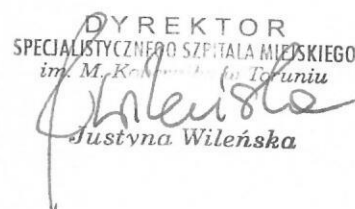 DYREKTOR
SPECJALISTYCZNEGO SZPITALA MIEJSKIEGO
im. M. Kopernika w Toruniu
Wileńska
Justyna Wileńska